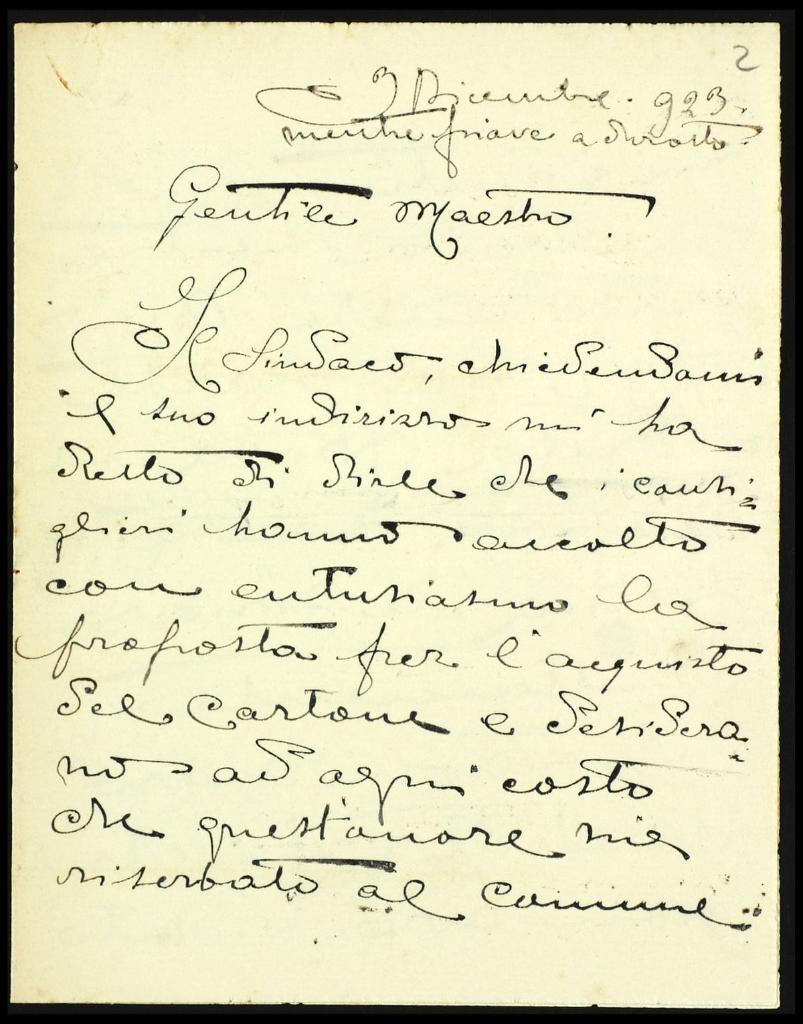 2
3 Dicembre. 923.
mentre piove a dirotto.
Gentile Maestro.
Il Sindaco, chiedendomi
il suo indirizzo mi ha
detto di dirle che i consi=
glieri hanno accolto
con entusiasmo la
proposta per l'acquisto
del Cartone e desidera
no ad ogni costo
che quest'onore sia
riserbato al Comune.